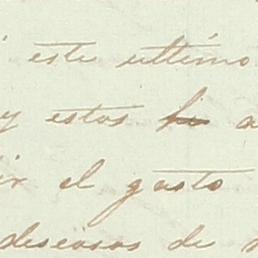 este ultimo
y estos
el gasto
deseosos de